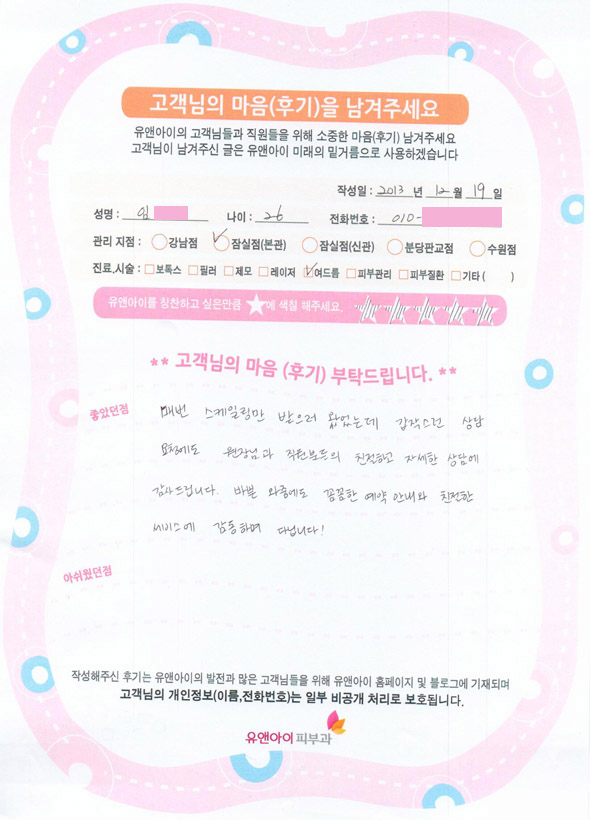 고객님의 마음(후기)을 남겨주세요
유앤아이의 고객님들과 직원들을 위해 소중한 마음(후기) 남겨주세요
고객님이 남겨주신 글은 유앤아이 미래의 밑거름으로 사용하겠습니다
작성일 : 2013 년 12 월 19 일
성명 : 임 나이 : 26 전화번호 : 010-
관리 지점 : 강남점 잠실점(본관) 잠실점(신관) 분당판교점 수원점
진료,시술 : 보톡스 필러 제모 레이저 여드름 피부관리 피부질환 기타 ( )
유앤아이를 칭찬하고 싶은만큼 ★에 색칠 해주세요.
** 고객님의 마음 (후기) 부탁드립니다. **
좋았던점 매번 스케일링만 받으러 왔었는데 갑작스런 상담
요청에도 원장님과 직원분들의 친절하고 자세한 상담에
감사드립니다. 바쁜 와중에도 꼼꼼한 예약 안내와 친절한
서비스에 감동하며 다닙니다!
아쉬웠던점
작성해주신 후기는 유앤아이의 발전과 많은 고객님들을 위해 유앤아이 홈페이지 및 블로그에 기재되며
고객님의 개인정보(이름,전화번호)는 일부 비공개 처리로 보호됩니다.
유앤아이 피부과